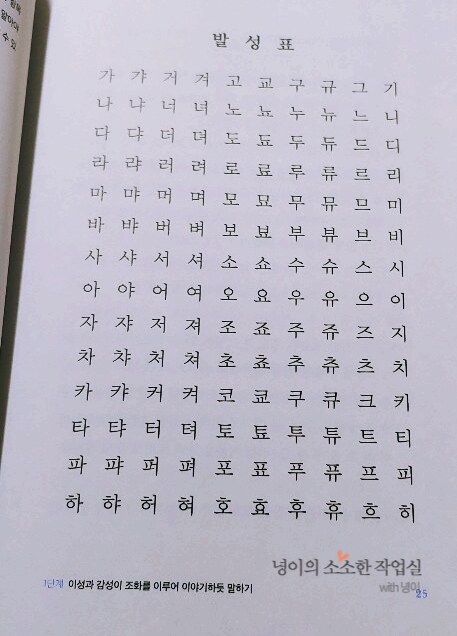 알아내
수 있
발 성 표
가 갸 거 겨 고 교 구 규 그 기
나 냐 너 녀 노 뇨 누 뉴 느 니
다 댜 더 뎌 도 됴 두 듀 드 디
라 랴 러 려 로 료 루 류 르 리
마 먀 머 며 모 묘 무 뮤 므 미
바 뱌 버 벼 보 뵤 부 뷰 브 비
사 샤 서 셔 소 쇼 수 슈 스 시
아 야 어 여 오 요 우 유 으 이
자 쟈 저 져 조 죠 주 쥬 즈 지
차 챠 처 쳐 초 쵸 추 츄 츠 치
카 캬 커 켜 코 쿄 쿠 큐 크 키
타 탸 터 텨 토 툐 투 튜 트 티
파 퍄 퍼 펴 포 표 푸 퓨 프 피
하 햐 허 혀 호 효 후 휴 흐 히
넝이의 소소한 작업실
with 넝이
1단계 이성과 감성이 조화를 이루어 이야기하듯 말하기
25